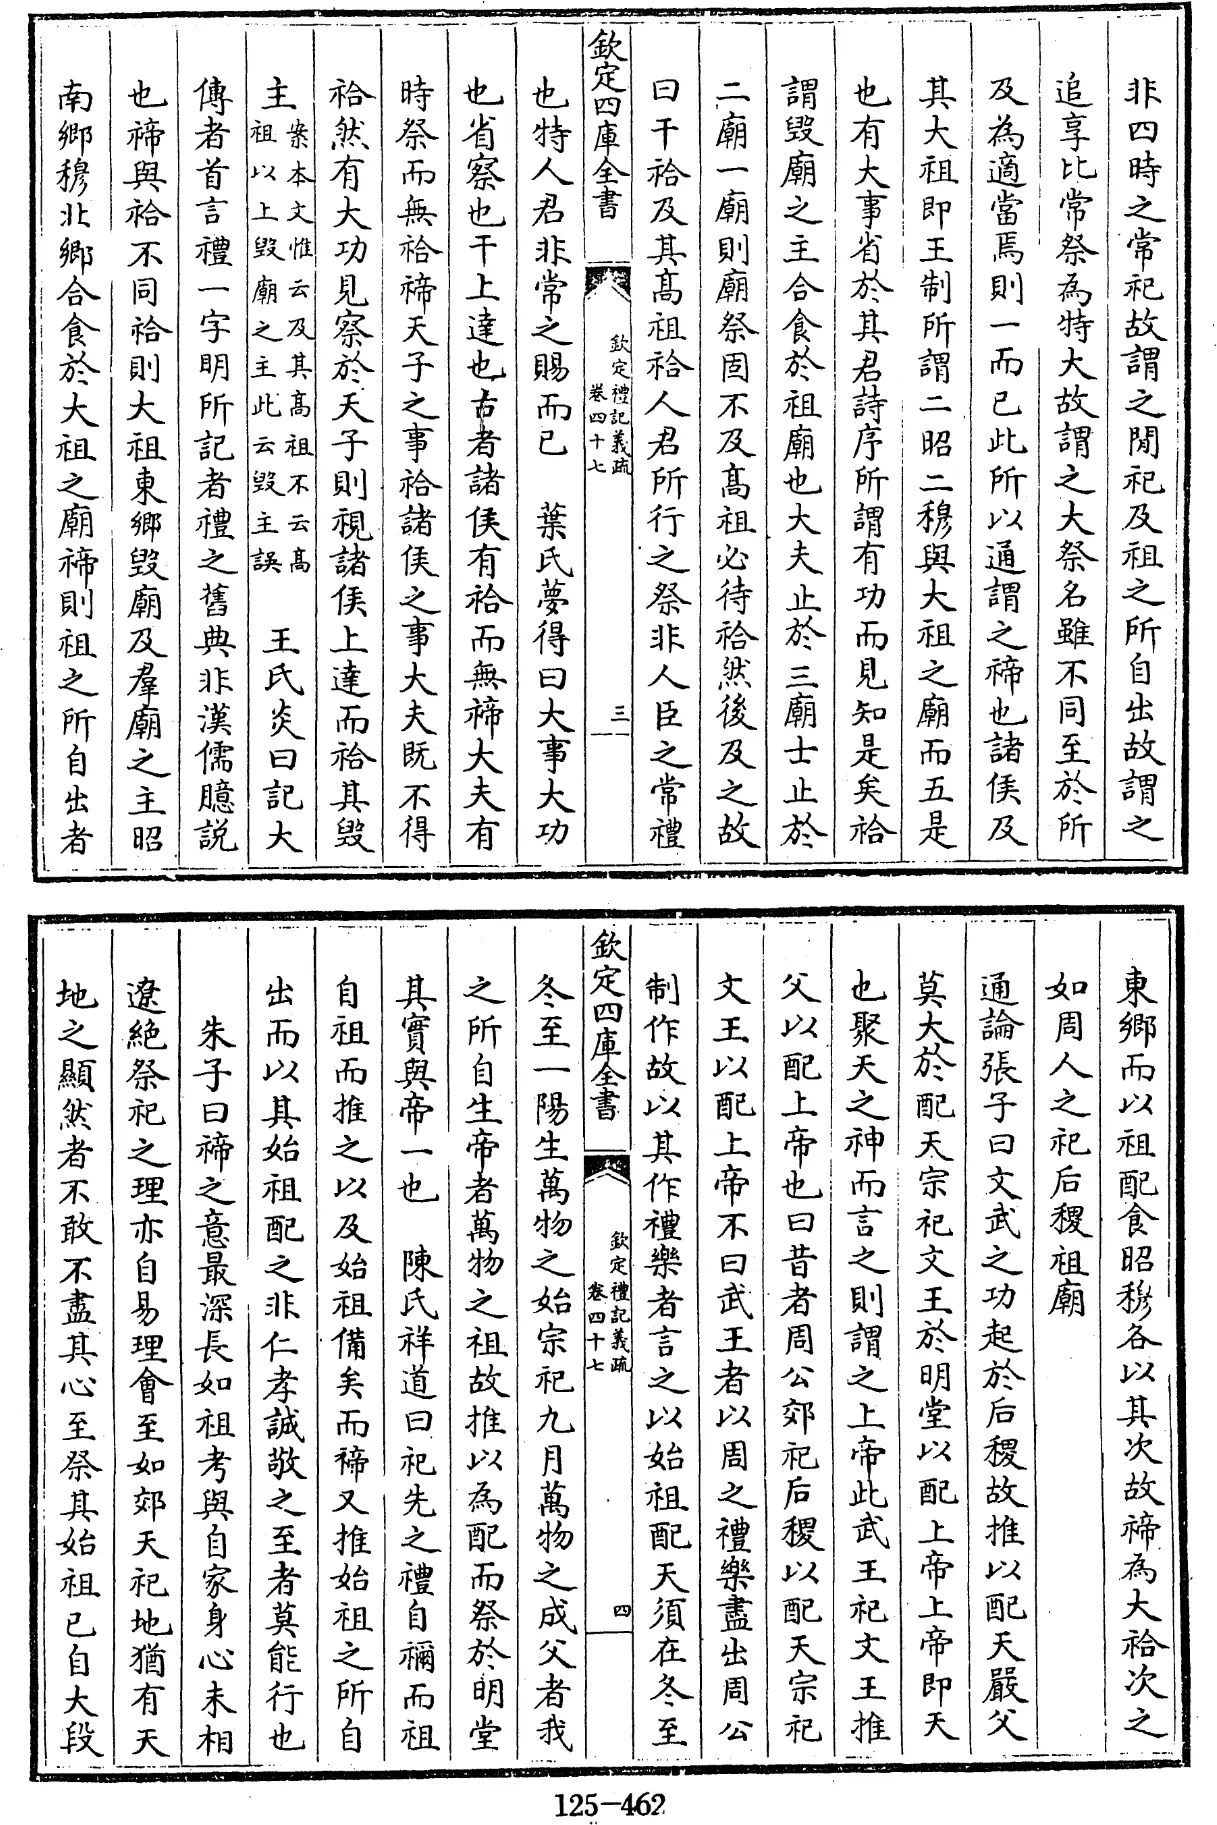 非四時之常祀故謂之閒祀及祖之所自出故謂之
追享比常祭為特大故謂之大祭名雖不同至於所
及為適當焉則一而已此所以通謂之禘也諸侯及
其大祖即王制所謂二昭二穆與大祖之廟而五是
也有大事省於其君詩序所謂有功而見知是矣祫
謂毀廟之主合食於祖廟也大夫止於三廟士止於
二廟一廟則廟祭固不及高祖必待祫然後及之故
曰干祫及其高祖祫人君所行之祭非人臣之常禮
欽定四庫全書
欽定禮記義疏
卷四十七
三
也特人君非常之賜而已 葉氏夢得曰大事大功
也省察也干上達也古者諸侯有祫而無禘大夫有
時祭而無祫禘天子之事祫諸侯之事大夫既不得
祫然有大功見察於天子則視諸侯上達而祫其毀
主案本文惟云及其高祖不云高祖以上毀廟之主此云毀主誤 王氏炎曰記大
傳者首言禮一字明所記者禮之舊典非漢儒臆説
也禘與祫不同祫則大祖東鄉毀廟及羣廟之主昭
南鄉穆北鄉合食於大祖之廟禘則祖之所自出者
東鄉而以祖配食昭穆各以其次故禘為大祫次之
如周人之祀后稷祖廟
通論張子曰文武之功起於后稷故推以配天嚴父
莫大於配天宗祀文王於明堂以配上帝上帝即天
也聚天之神而言之則謂之上帝此武王祀文王推
父以配上帝也曰昔者周公郊祀后稷以配天宗祀
文王以配上帝不曰武王者以周之禮樂盡出周公
制作故以其作禮樂者言之以始祖配天須在冬至
欽定四庫全書
欽定禮記義疏
卷四十七
四
冬至一陽生萬物之始宗祀九月萬物之成父者我
之所自生帝者萬物之祖故推以為配而祭於明堂
其實與帝一也 陳氏祥道曰祀先之禮自禰而祖
自祖而推之以及始祖備矣而禘又推始祖之所自
出而以其始祖配之非仁孝誠敬之至者莫能行也
朱子曰禘之意最深長如祖考與自家身心未相
遼絶祭祀之理亦自易理會至如郊天祀地猶有天
地之顯然者不敢不盡其心至祭其始祖已自大段
125-462